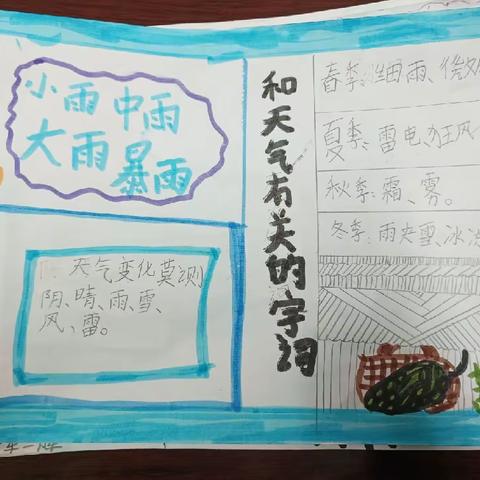 小雨中雨
大雨暴雨
天气变化莫测
阴、晴、雨、雪、
风、雷。
和天气有关的字词
春季:细雨、微
夏季:雷电、狂风、
秋季:霜、雾。
冬季:雨夹雪、冰冻